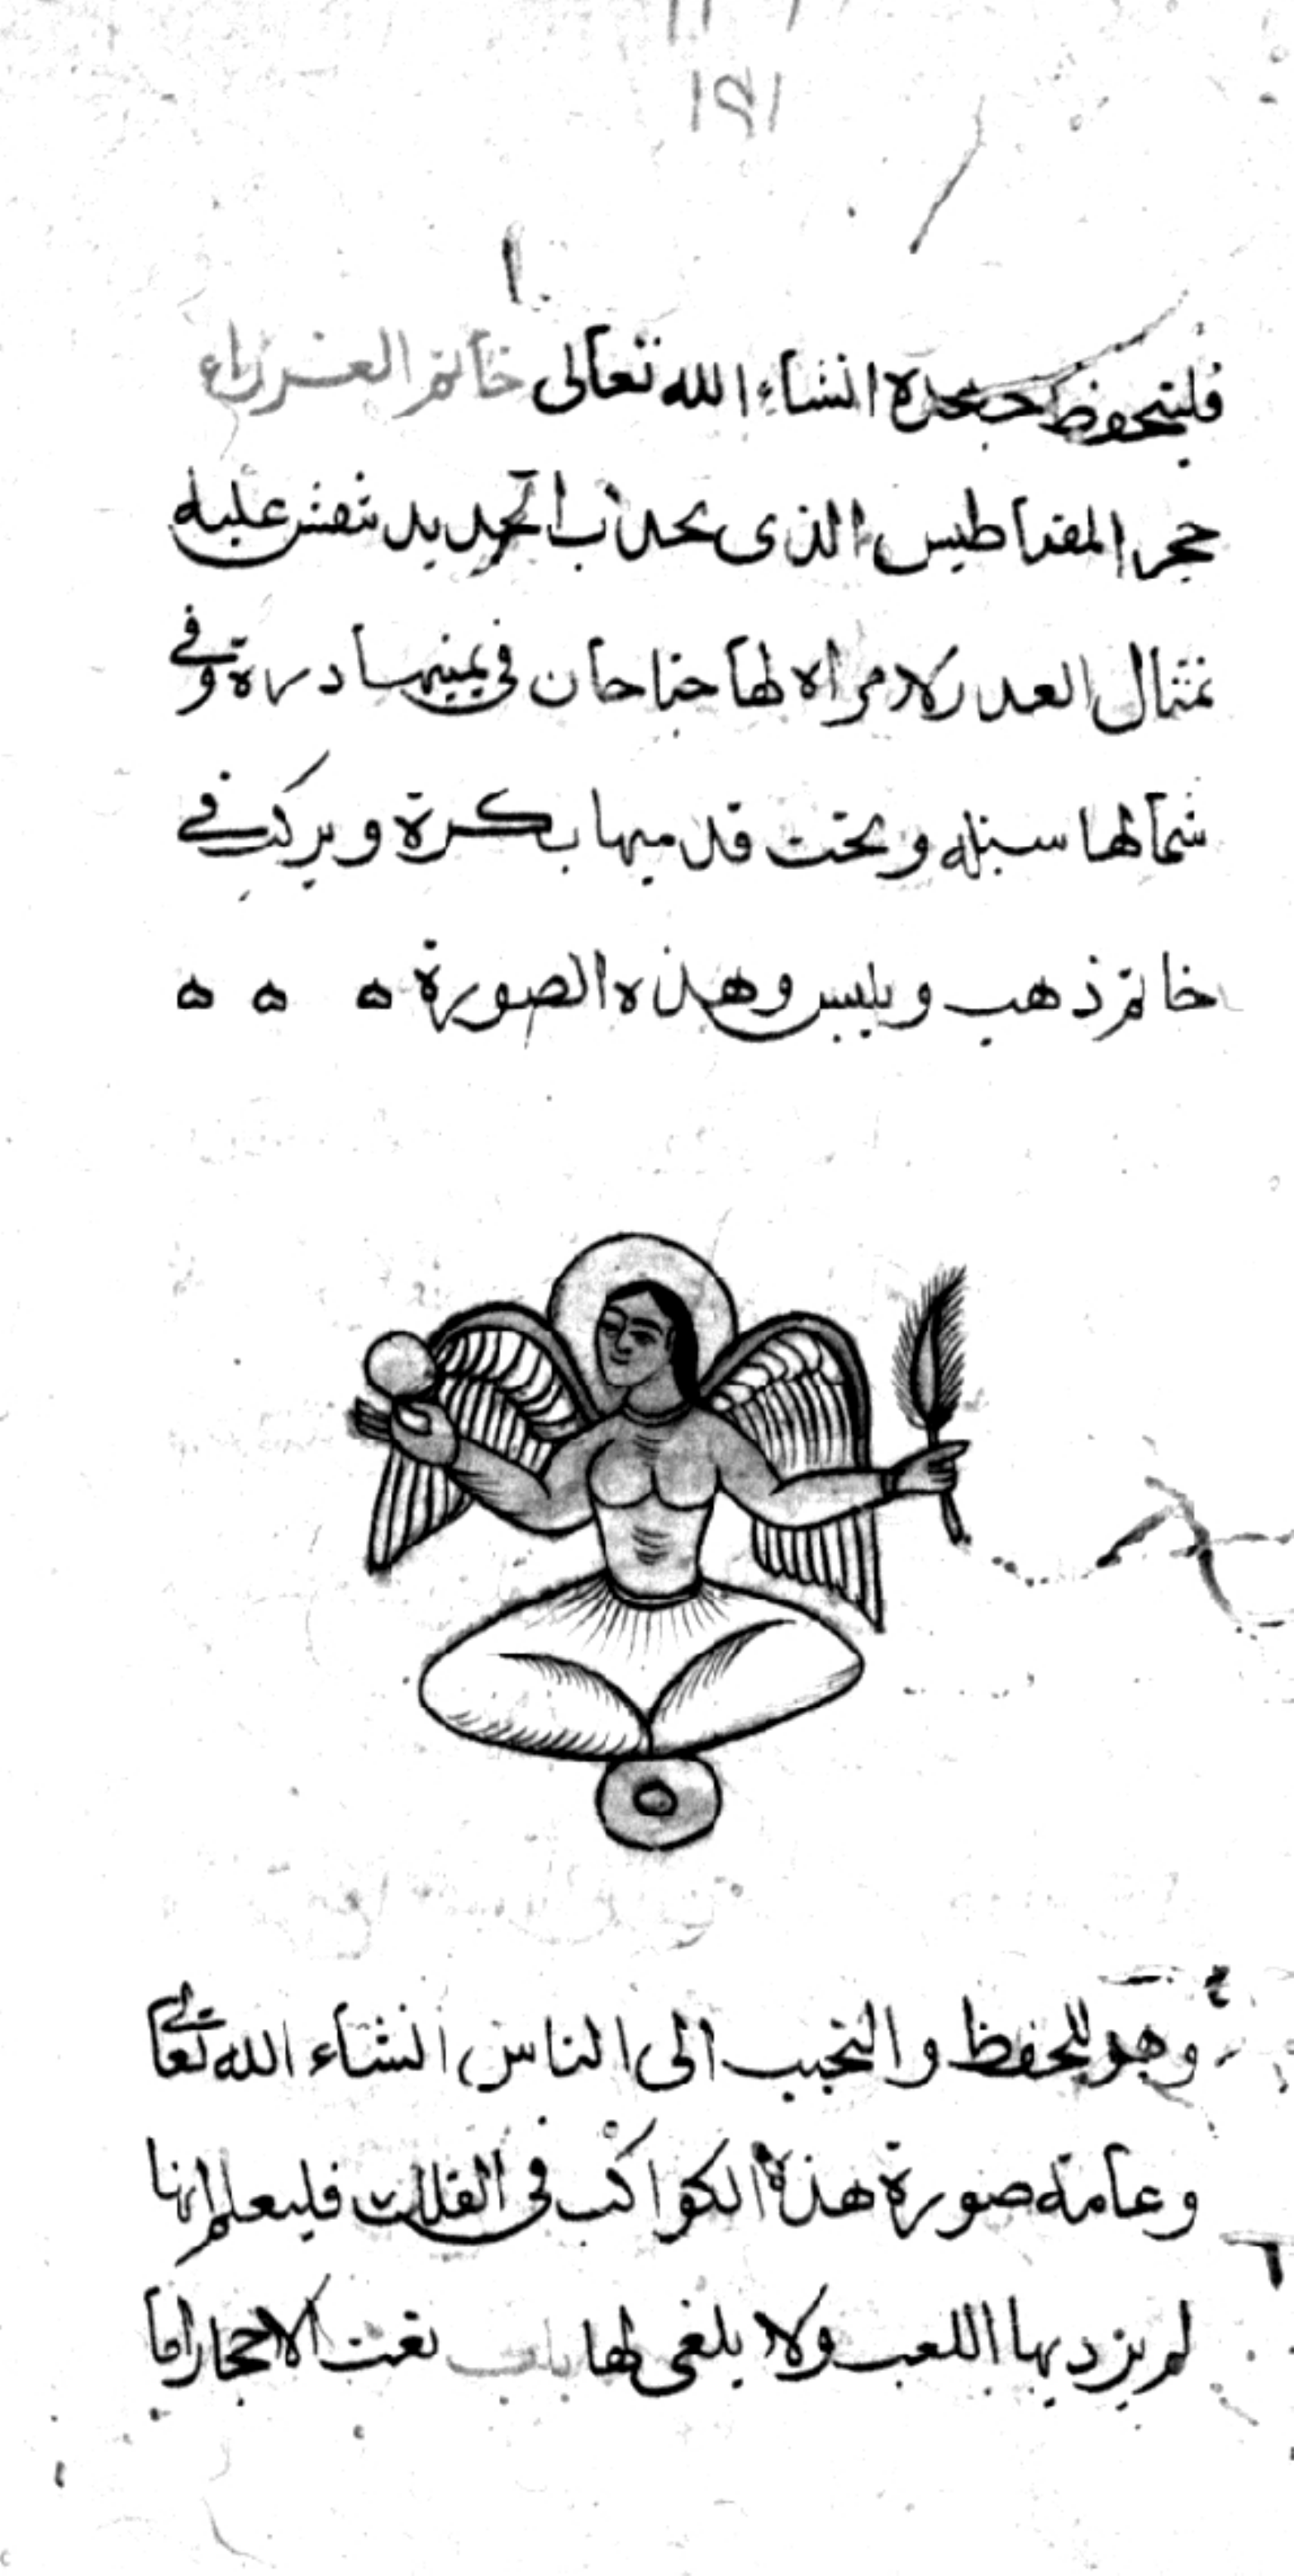 فليتحفظ جهده انشاء الله تعالى خاتم العذراء
حجر المقناطيس الذى يحذب الحديد ينقش عليه
تمثال العدرلا مراه لها جناحان فى يمينها درة وفى
شمالها سنبله وتحت قدميها بكرة ويركب فى
خاتم ذهب ويلبس وهذه الصورة ه ه ه
وهو للحفظ والتحبب الى الناس انشاء الله تعالى
وعامة صورة هذه الكواكب فى الفلك فليعلم انها
لم يزد بها اللعب ولا يلغى لها باب نعت الاحجار اما